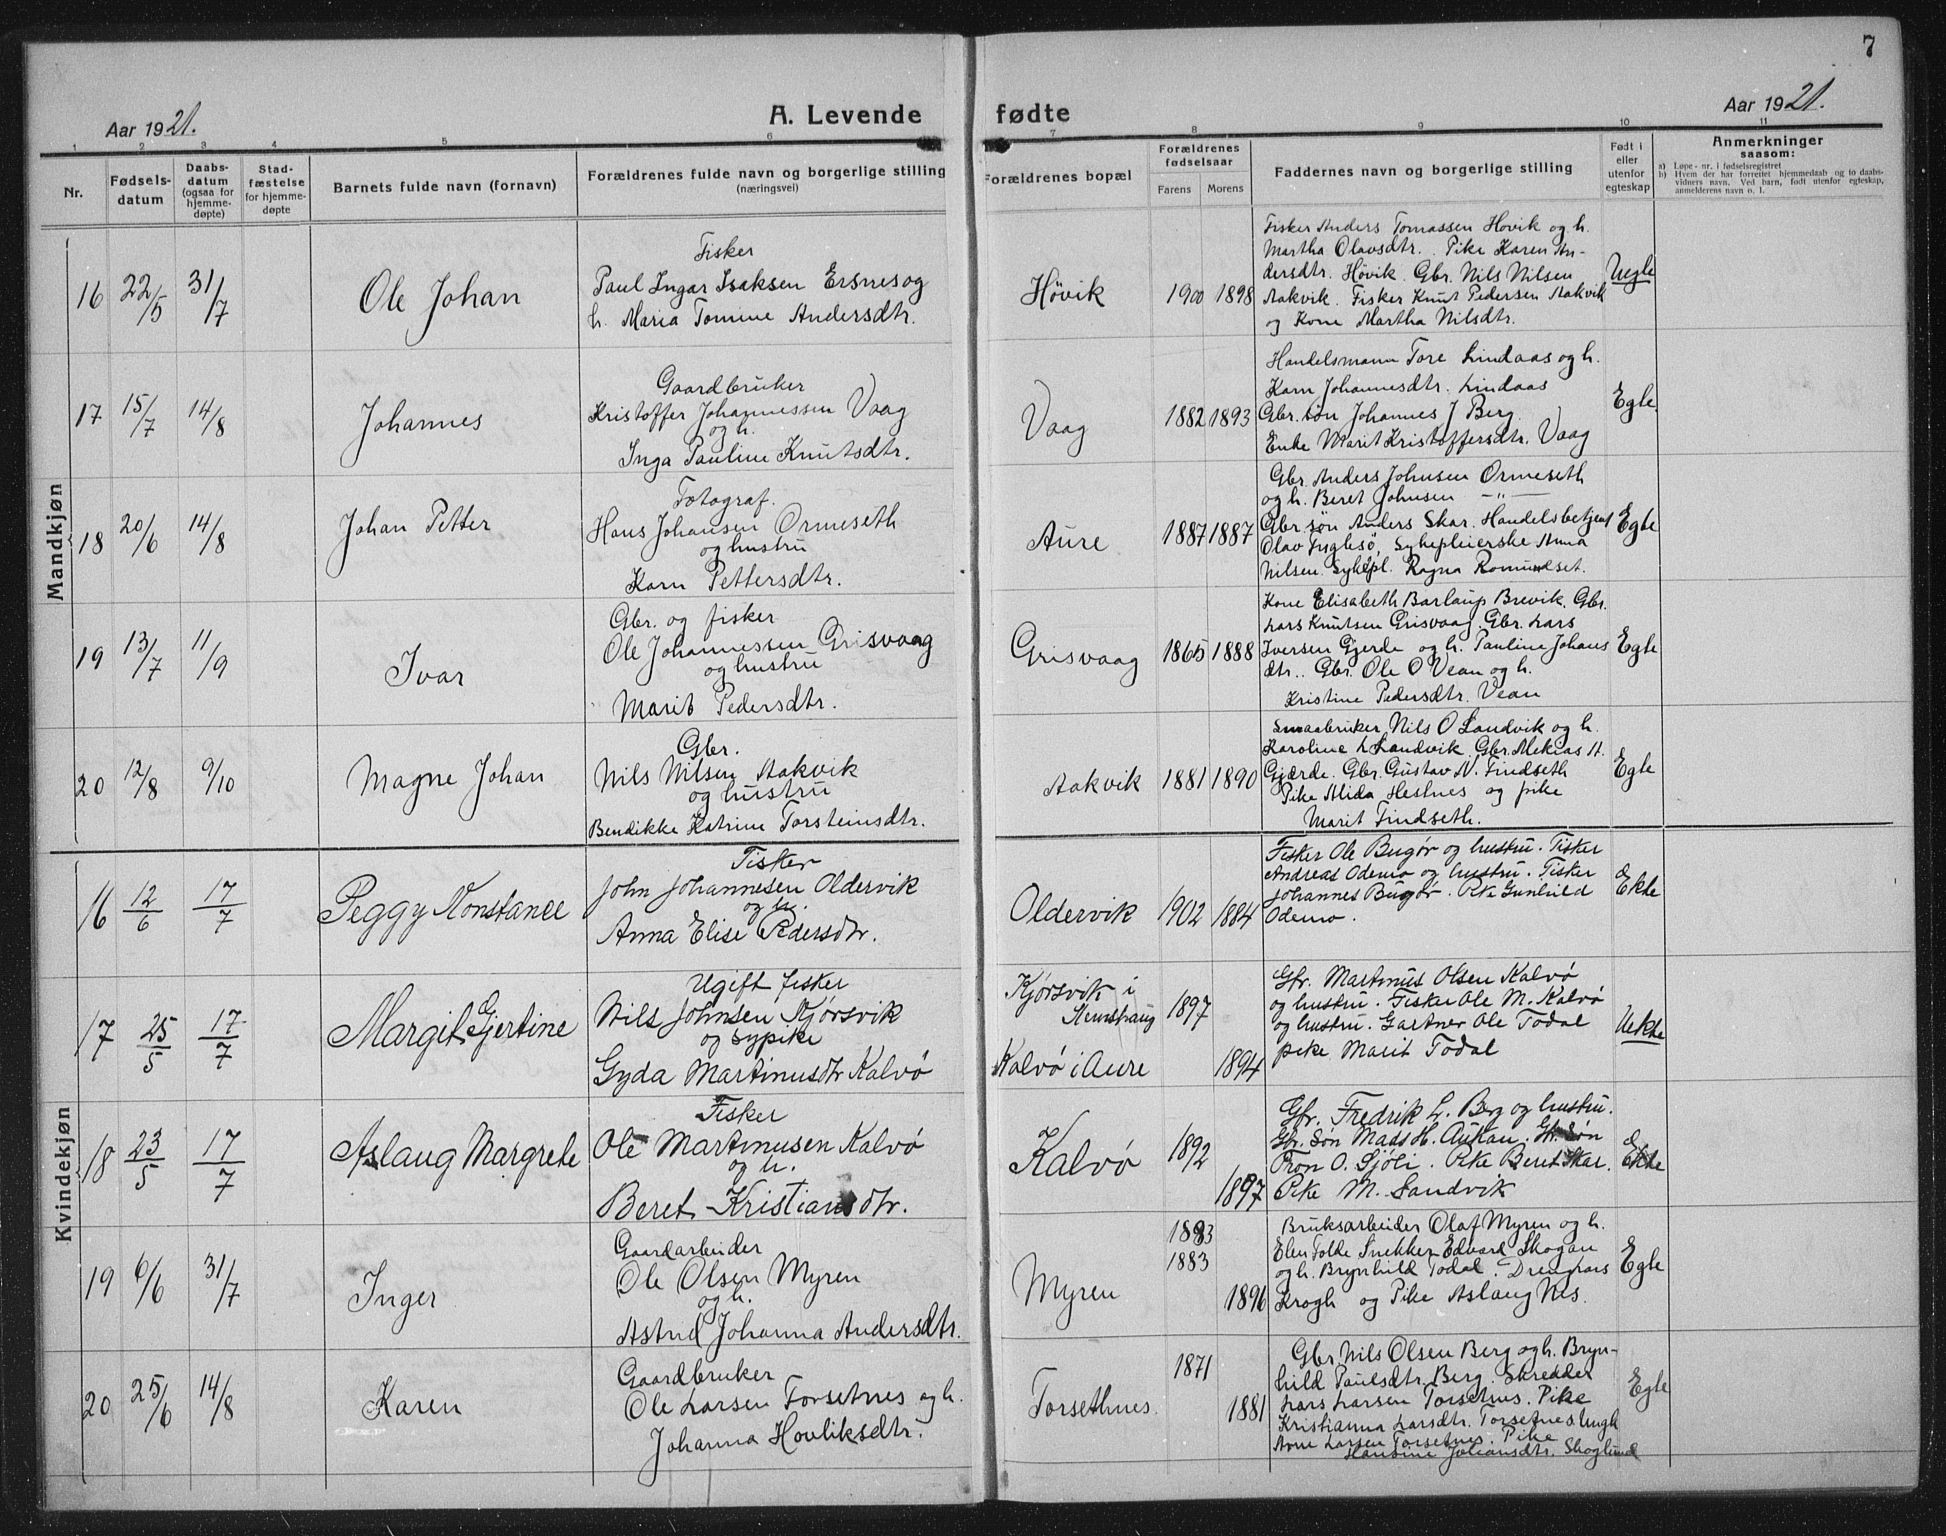 7
Aar 1921.
A. Levende
fødte
Aar 1921.
1 2 3 4 5 6 7 8 9 10 11
Nr.
Fødsels-
datum
Daabs-
datum
(ogsaa for
hjemme-
døpte)
Stad-
fæstelse
for hjemme-
døpte
Barnets fulde navn (fornavn)
Forældrenes fulde navn og borgerlige stilling
(næringsvei)
Forældrenes bopæl
Forældrenes
fødselsaar
Farens Morens
Faddernes navn og borgerlige stilling
Født i
eller
utenfor
egteskap
Anmerkninger
saasom:
a) Løpe-nr. i fødselsregistret
b) Hvem der har forrettet hjemmedaab og to daabs-
vidners navn. Ved barn, født utenfor egteskap,
anmelderens navn o. l.
Mandkjøn
16 22/5 31/7
Ole Johan
Fisker
Paul Ingar Isaksen Ersnes og
h. Maria Tomine Andersdtr.
Høvik
1900 1898
Fisker Anders Tomassen Hovik og h.
Martha Olavsdtr. Pike Karen An-
dersdtr. Høvik. Gbr. Nils Nilsen
Aakvik. Fisker Knut Pedersen Aakvik
og Kone Martha Nilsdtr.
Uegte
17 15/7 14/8
Johannes
Gaardbruker
Kristoffer Johannessen Vaag
og h.
Inga Pauline Knutsdtr.
Vaag
1882 1893
Handelsmann Tore Lindaas og h.
Karn Johannesdtr. Lindaas
Gbr. søn Johannes J Berg.
Enke Marit Kristoffersdtr. Vaag
Egte.
18 20/6 14/8
Johan Petter
Fotograf.
Hans Johansen Ormeseth
og hustru
Karn Pettersdtr.
Aure
1887 1887
Gbr. Anders Johnsen Ormeseth
og h. Beret Johnsen —"—
Gbr. søn Anders Skar. Handelsbetjent
Olav Fuglesø, Sykepleierske Anna
Nilsen. Sykepl. Ragna Romundset.
Egte
19 13/7 11/9
Ivar
Gbr. og fisker
Ole Johannessen Grisvaag
og hustru
Marit Pedersdtr.
Grisvaag
1865 1888
Kone Elisabeth Barlaup Brevik. Gbr.
Lars Knutsen Grisvaag. Gbr. Lars
Iversen Gjerde og h. Pauline Johans
dtr.. Gbr. Ole O Vean og h.
Kristine Pedersdtr. Vean
Egte
20 12/8 9/10
Magne Johan
Gbr.
Nils Nilsen Aakvik
og hustru
Bendikke Katrine Torsteinsdtr.
Aakvik
1881 1890
Smaabruker Nils O Sandvik og h.
Karoline L Sandvik. Gbr. Mekias H.
Gjærde. Gbr. Gustav N. Findseth
Pike Alida Hestnes og pike
Marit Findseth.
Egte
Kvindekjøn
16 12/6 17/7
Peggy Konstance
Fisker
John Johannesen Oldervik
og h.
Anna Elise Pedersdtr.
Oldervik
1902 1884
Fisker Ole Bugør og hustru. Fisker
Andreas Odemo og hustru. Fisker
Johannes Bugør. Pike Gunhild
Odemo.
Ekte
17 25/5 17/7
Margit Gjertine
Ugift fisker
Nils Johnsen Kjørsvik
og sypike
Gyda Martinusdtr Kalvø
Kjørsvik i
Kalvø i Aure
1897
1894
Gbr. Martinus Olsen Kalvø
og hustru. Fisker Ole M. Kalvø
og hustru. Gartner Ole Todal
pike Marit Todal
Uekte
18 23/5 17/7
Aslaug Margrete
Fisker
Ole Martinusen Kalvø
og h.
Beret Kristiansdtr.
Kalvø
1892
1897
Gbr. Fredrik L. Berg og hustru.
Gbr. Søn Mads H. Aukan. Gbr. Søn
Tron O. Sjøli. Pike Beret Skar.
Pike M. Sandvik
Ekte
19 6/6 31/7
Inger
Gaardarbeider
Ole Olsen Myren
og h.
Astrid Johanna Andersdtr.
Myren
1883
1883
1896
Bruksarbeider Olaf Myren og h.
Elen Tolde Snekker Edvard Skogan
og h. Brynhild Todal. Dreng Lars
Krogh og Pike Aslaug Nes.
Egte
20 25/6 14/8
Karen
Gaardbruker
Ole Larsen Torsetnes og h.
Johanna Hovliksdtr.
Torsethnes.
1871
1881
Gbr. Nils Olsen Berg og h. Bryn-
hild Paulsdtr. Berg. Skredder
Lars Larsen Torsetnes. Pike
Kristianna Larsdtr. Torsetnes Ungk
Arne Larsen Torsetnes. Pike
Hansine Johansdtr. Skoglund
Egte